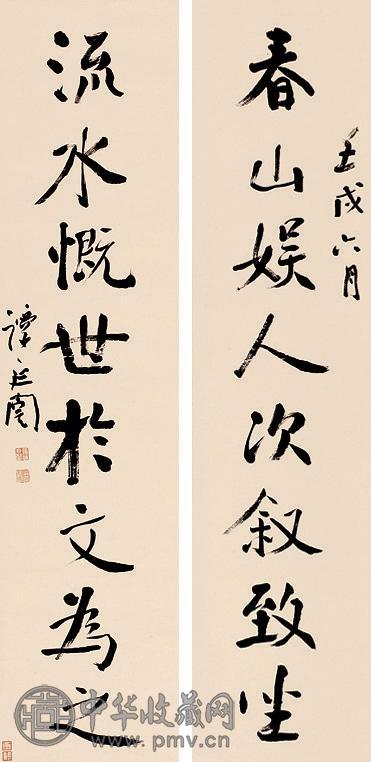 壬戌六月
春山娱人次叙致坐
流水慨世於文為之
譚延闓
中华收藏网
www.pmv.cn